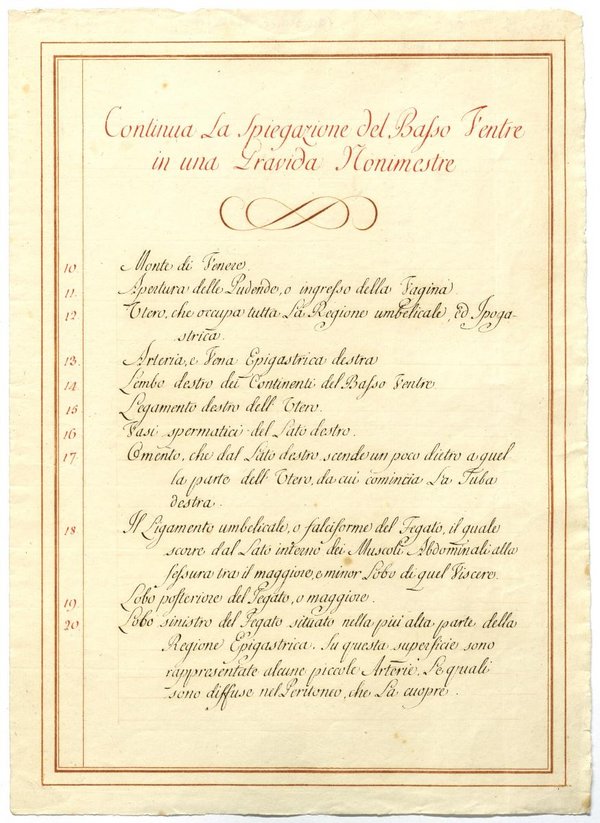 Continua La Spiegazione del Basso Ventre
in una Gravida Nonimestre
10. Monte di Venere.
11. Apertura delle Pudende, o ingresso della Vagina.
12 Utero, che occupa tutta La Regione umbelicale, ed Ipoga-
strica.
13. Arteria, e Vena Epigastrica destra
14 Lembo destro dei Continenti del Basso Ventre.
15 Legamento destro dell' Utero.
16 Vasi spermatici del Lato destro.
17 Omento, che dal Lato destro scende un poco dietro a quel
la parte dell' Utero, da cui comincia La Tuba
destra.
18 Il Ligamento umbelicale, o falciforme del Fegato, il quale
scorre dal Lato interno dei Muscoli Abdominali alla
fessura tra il maggiore, e minor Lobo di quel Viscere.
19 Lobo posteriore del Fegato, o maggiore.
20 Lobo sinistro del Fegato situato nella piui alta parte della
Regione Epigastrica. Su questa superficie sono
rappresentate alcune piccole Arterie, Le quali
sono diffuse nel Peritoneo, che La cuopre.